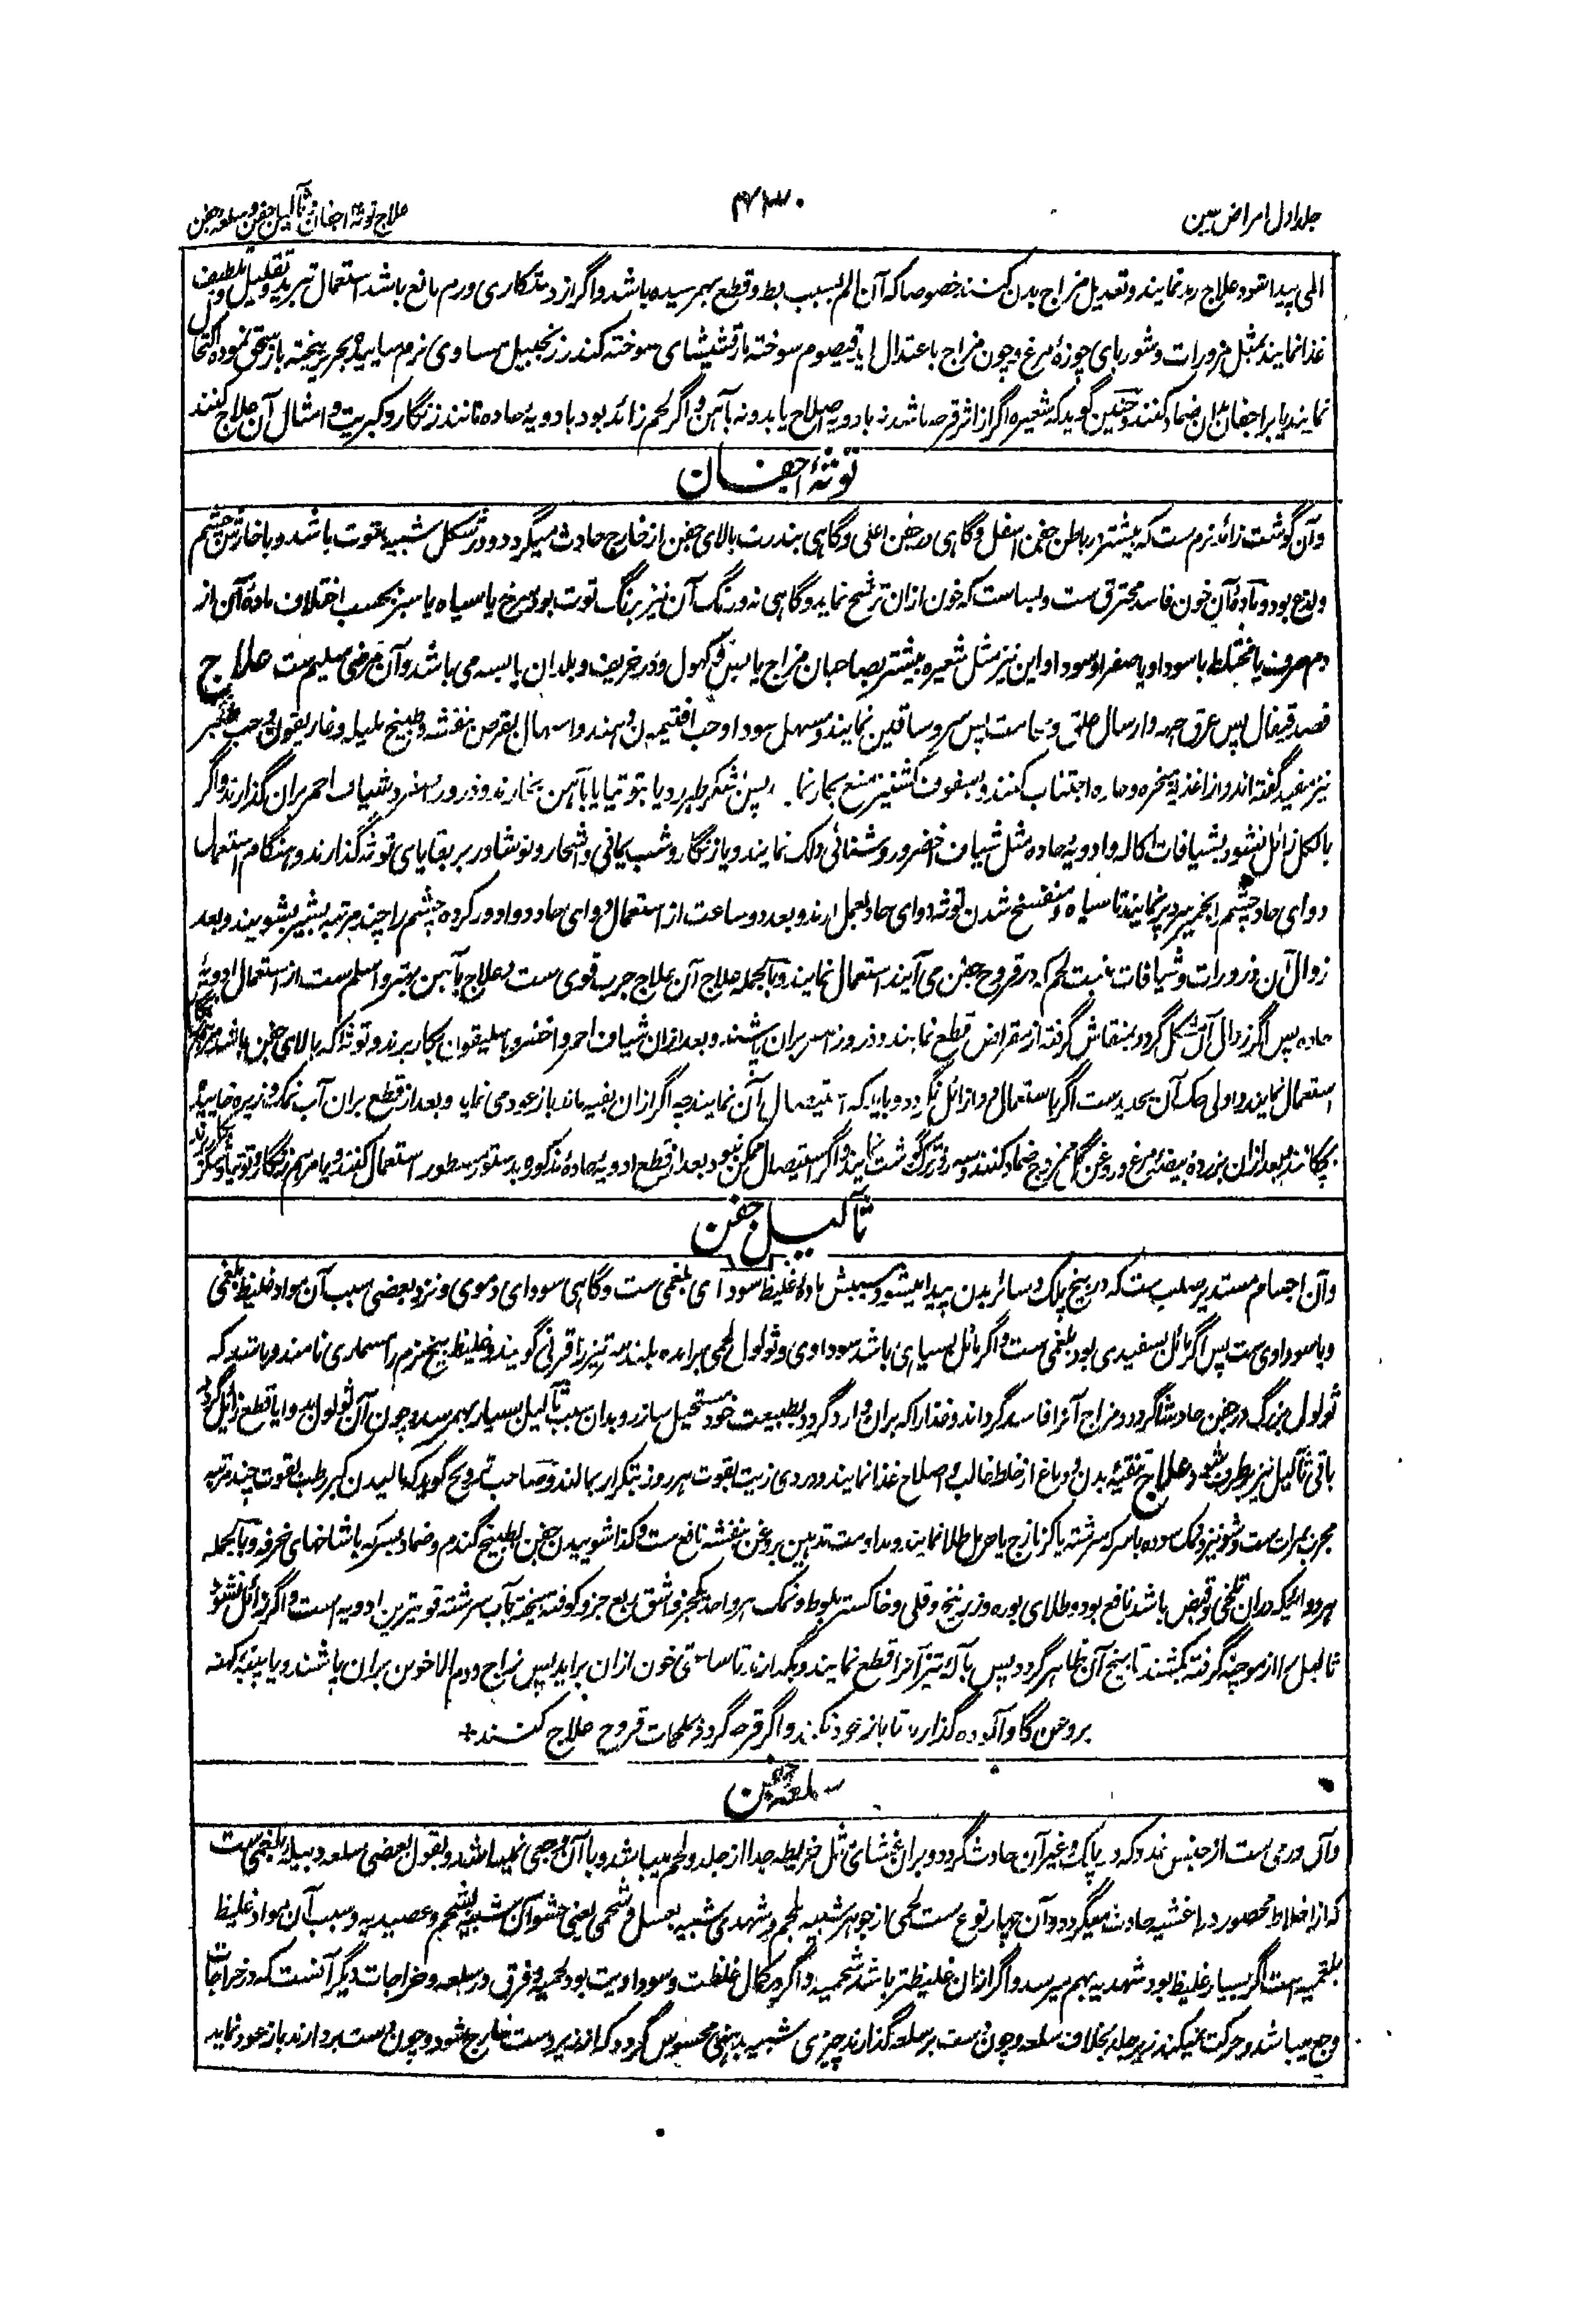 جلد اول امراض عین
۴۳۰
علاج توثهٔ اجفان و ثآلیل جفن و سلعهٔ جفن
المی پیدا شود علاج رمد نمایند و تعدیل مزاج بدن کنند خصوصا که آن الم بسبب بط و قطع بهم رسیده باشد و اگر از دستکاری ورم مانع باشد استعمال تبرید و تقلیل و تلطیف
غذا نمایند بمثل مزورات و شوربای چوزهٔ مرغ و چون مزاج باعتدال آید قیصوم سوخته مارقشیشای سوخته کندر زنجبیل مساوی نرم سایند و بحریر بیخته باز سحق نموده اکتحال
نمایند یا بر اجفان بدان ضماد کنند و حنین گوید که شعیره اگر از اثر قرحه باشد نه بادویه اصلاح یابد و نه بآهن و اگر لحم زائد بود بادویهٔ حاده مانند زنگار و کبریت و امثال آن علاج کنند
توثهٔ اجفان
و آن گوشت زائد نرم ست که بیشتر در باطن جفن اسفل و گاهی در جفن اعلی و گاهی بندرت بالای جفن از خارج حادث میگردد و در شکل شبیه بتوت باشد و با خارش چشم
و لذع بود و مادهٔ آن خون فاسد محترق ست و بسا ست که خون ازان ترشح نماید و گاهی نه و رنگ آن نیز برنگ توت بود سرخ یا سیاه یا سبز بحسب اختلاف مادهٔ آن از
دم صرف یا مختلط با سودا و یا صفرا و سودا و این نیز مثل شعیره بیشتر بصاحبان مزاج یابس و کهول و در خریف و بلدان یابسه می باشد و آن مرض سلیم ست علاج
فصد قیفال پس عرق جبهه و ارسال علق و حجامت پس سر و ساقین نمایند و مسهل سودا و حب افتیمون دهند و اسهال بقرص بنفشه و طبیخ هلیله و غاریقون و حب
نیز مفید گفته اند و از اغذیهٔ مبخره و حاره اجتناب کنند و بسفوف کشنیز منع بخار نمایند پس بشکر طبرزد یا بتوتیا یا بآهن بخارند و ذرور اصفر و شیاف احمر بران گذارند و اگر
بالکل زائل نشود بشیافات اکاله و ادویهٔ حاده مثل شیاف اخضر و روشنائی دلک نمایند و یا زنگار و شب یمانی و اشخار و نوشادر بر بقایای توثه گذارند و هنگام استعمال
دوای حاد چشم را بخمیر سرد پر نمایند تا سیاه و منفسخ شدن توثه دوای حاد بعمل آرند و بعد دو ساعت از استعمال دوای حاد دوا دور کرده چشم را چند مرتبه بشیر بشویند و بعد
زوال آن ذرورات و شیافات منبت لحم که در قروح جفن می آیند استعمال نمایند و بالجمله علاج آن علاج جرب قوی ست و علاج بآهن بهتر و اسلم ست از استعمال ادویهٔ
حاده پس اگر زوال آن مشکل گردد بمنقاش گرفته از مقراض قطع نمایند و ذرور اصفر بران پاشند و بعد ازان شیاف احمر و اخضر و باسلیقون بکار برند و توثه که بالای جفن باشد
استعمال نمایند و اولی حک آن بحدید ست اگر باستعمال دوا زائل نگردد و باید که استیصال آن نمایند چه اگر ازان بقیه ماند باز عود می نماید و بعد از قطع بران آب نمک و زیره خائیده
بچکانند و بعد ازان بزردهٔ بیضهٔ مرغ و روغن گل ممزوج ضماد کنند و سه روز ترک گوشت نمایند و اگر استیصال ممکن نبود بعد از قطع ادویهٔ حادهٔ مذکوره بدستور مسطور استعمال کنند و یا مرهم زنگار و توتیا و شکر
ثآلیل جفن
و آن اجسام مستدیر صلب ست که در بیخ پلک و سائر بدن پیدا میشود سببش مادهٔ غلیظ سوداوی بلغمی ست و گاهی سودای دموی و نزد بعضی سبب آن مواد غلیظ بلغمی
و یا سوداوی ست پس اگر مائل بسفیدی بود بلغمی ست و اگر مائل بسیاهی باشد سوداوی و ثولول لحمی برآمده بلند سر تیز را قرنی گویند و غلیظ بیخ نرم را مسماری نامند و باشد که
ثولول بزرگ در جفن حادث گردد و مزاج آنرا فاسد گرداند و غذا را که بران وارد گردد بطبیعت خود مستحیل سازد و بدان سبب ثآلیل بسیار بهم رسد و چون آن ثولول بدوا یا قطع زائل گردد
باقی ثآلیل نیز برطرف شود علاج تنقیهٔ بدن و دماغ از خلط غالب و اصلاح غذا نمایند و دردی زیت بقوت هر روز بتکرار بمالند و صاحب ترویح گوید که مالیدن کبر رطب بقوت چند مرتبه
مجرب بمرات ست و شونیز و نمک سوده با سرکه سرشته یا کزمازج یا حرمل طلا نمایند و مداومت تدهین بروغن بنفشه نافع ست و کذا شوییدن جفن بطبیخ گندم و ضماد بسرکه با شاخهای خرفه و بالجمله
هر دوائیکه دران تلخی و قبض باشد نافع بود و طلای بوره و زرنیخ و قلی و خاکستر بلوط و نمک هر واحد یکجزو اشق ربع جزو کوفته بیخته بآب سرشته قویترین ادویه است و اگر زائل نشود
ثآلیل را از موچنه گرفته بکشند تا بیخ آن ظاهر گردد پس بآلهٔ تیز آنرا قطع نمایند و بگذارند تا ساعتی خون ازان براید پس زاج و دم الاخوین بران پاشند و یا پنبهٔ کهنه
بروغن گاو آلوده گذارند تا باز عود نکند و اگر قرحه گردد بعلاجات قروح علاج کنند +
سلعهٔ جفن
و آن ورمی ست از جنس غدد که در پلک و غیر آن حادث گردد و بران غشای مثل خریطه جدا از جلد و لحم میباشد و با آن وجعی نمیباشد و بقول بعضی سلعه دبیلهٔ بلغمی ست
که از اخلاط محصور در اغشیه حادث میگردد و آن چهار نوع ست لحمی از جوهر شبیه بلحم و شهدی شبیه بعسل و شحمی یعنی حشو آن شبیه بشحم و عصیدیه و سبب آن مواد غلیظ
بلغمیه است اگر بسیار غلیظ بود شهدیه بهم میرسد و اگر ازان غلیظتر باشد شحمیه و اگر در کمال غلظت و سوداویت بود لحمیه و فرق در سلعه و خراجات دیگر آنست که در خراجات
وجع میباشد و حرکت نمیکند زیر جلد بخلاف سلعه و چون دست بر سلعه گذارند چیزی شبیه بدهنی محسوس گردد که از زیر دست خارج شود و چون دست بردارند باز عود نماید